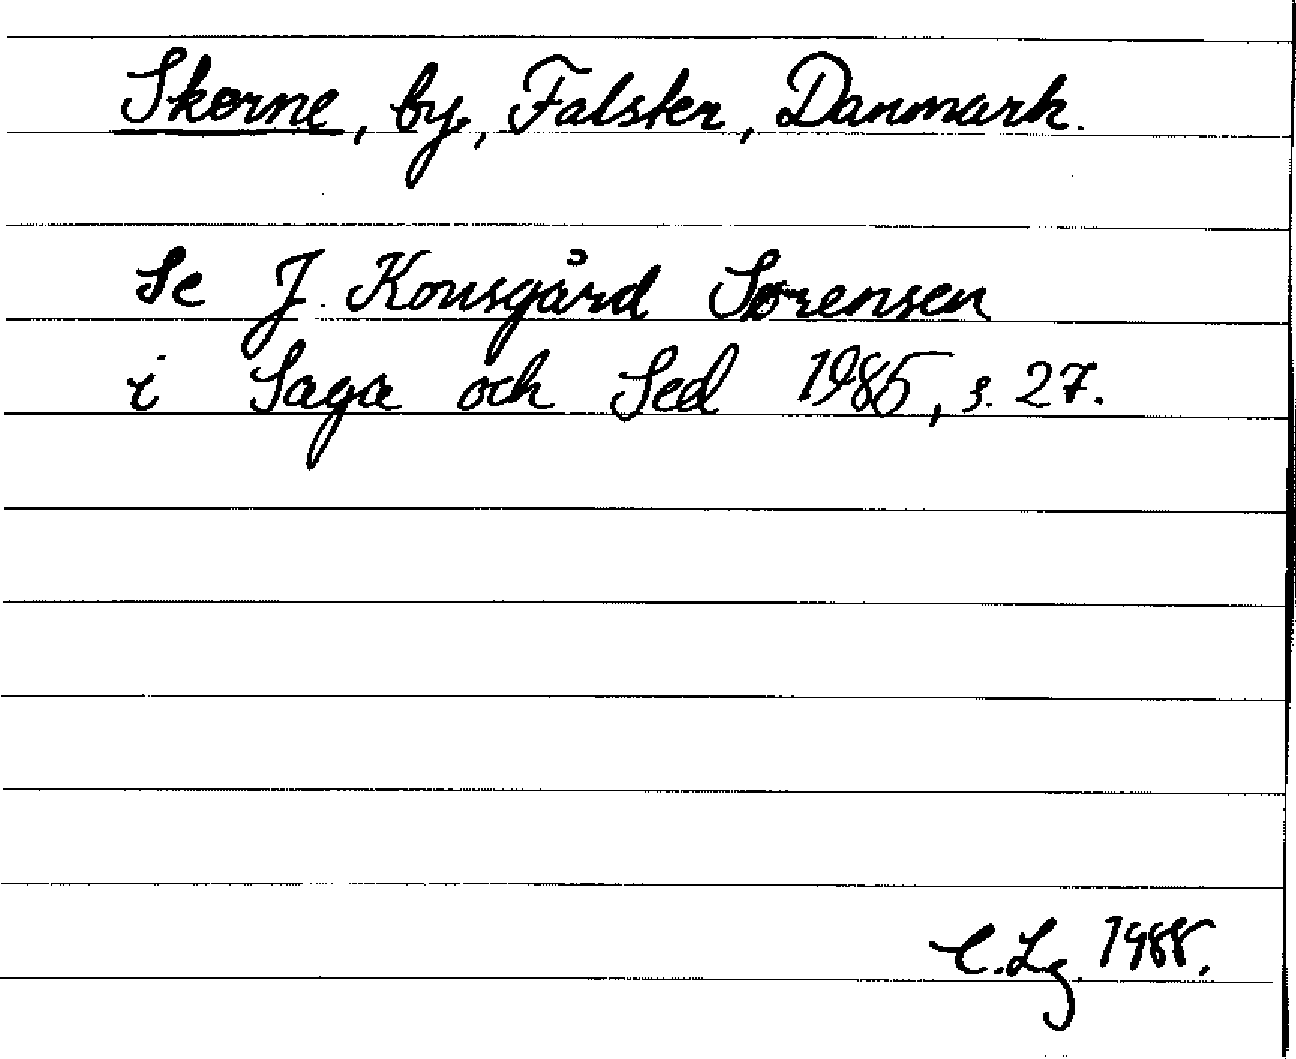 Skerne, by, Falster, Danmark.
Se J. Kousgård Sørensen
i Saga och Sed 1985, s. 27.
C. Lg 1988.